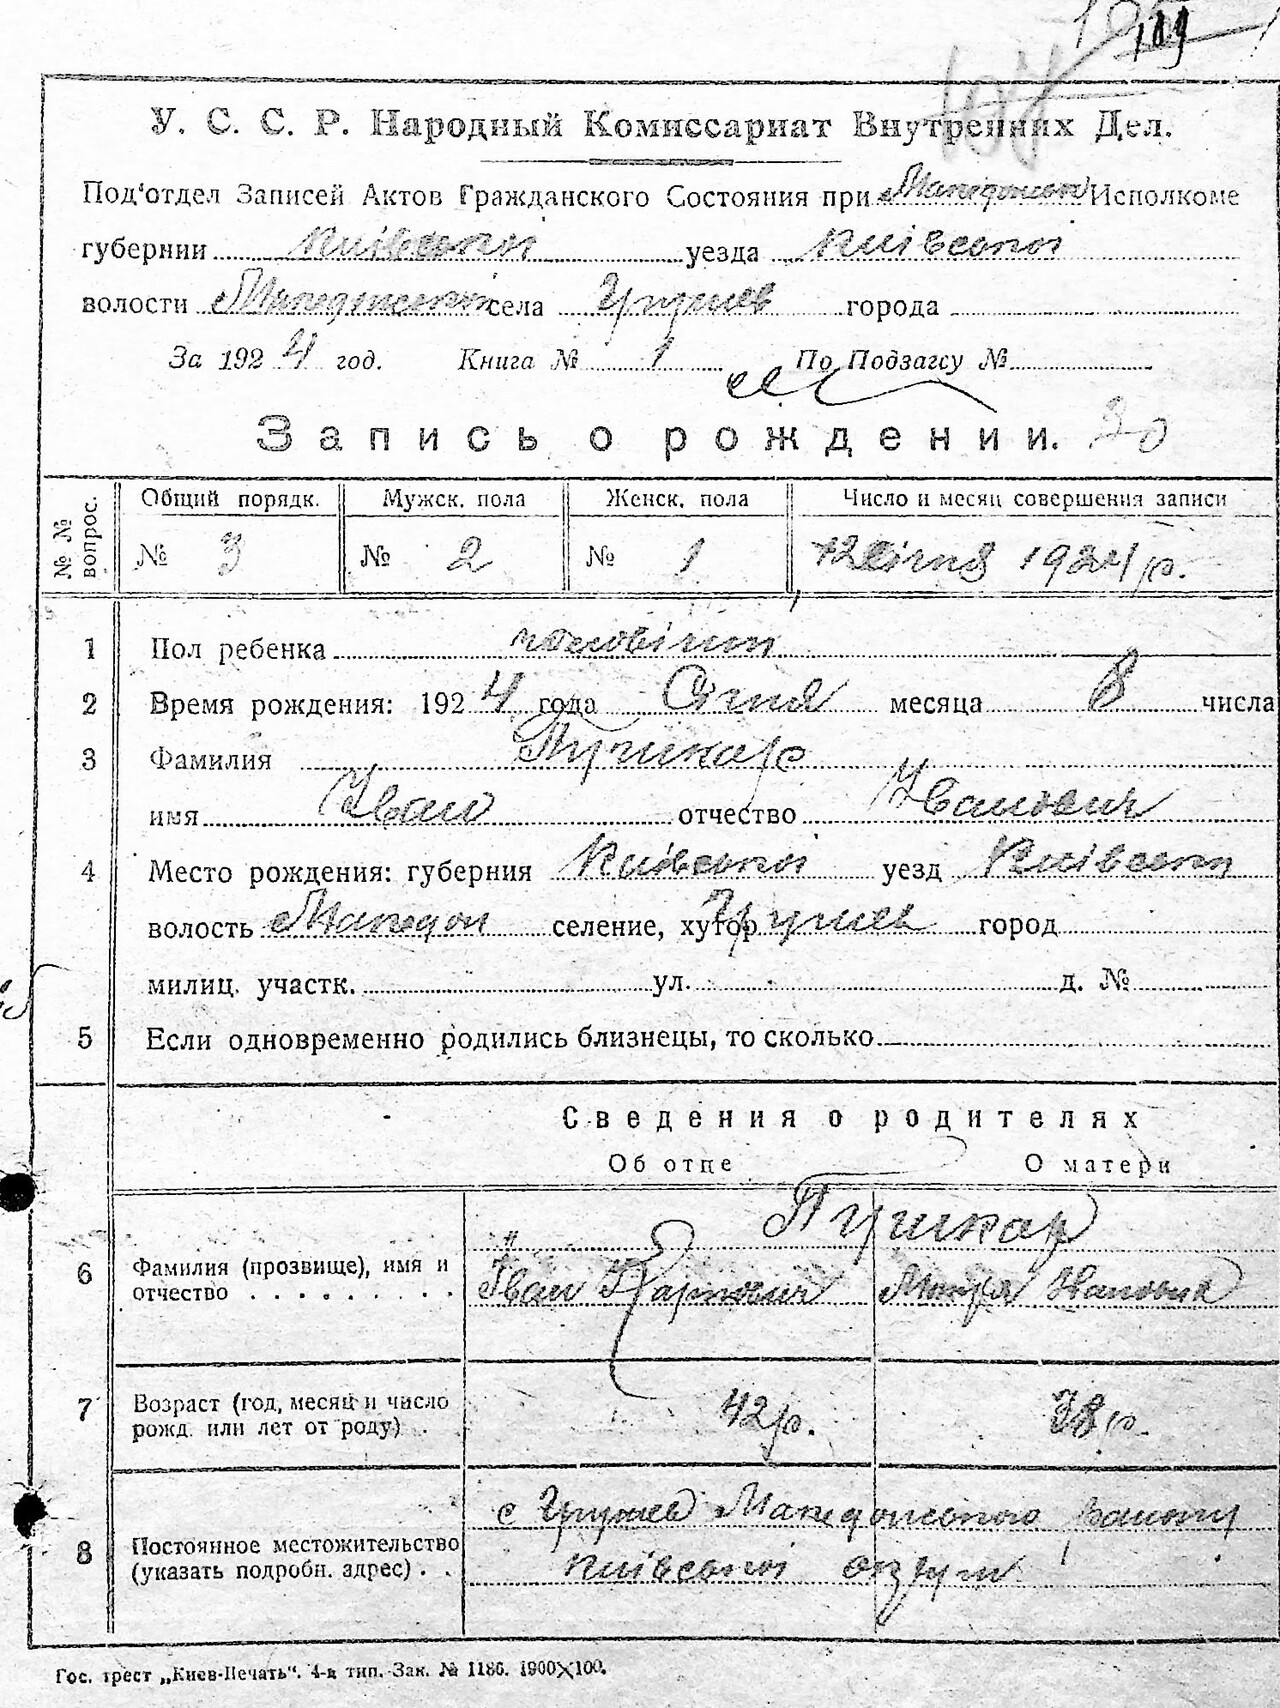 189
У. С. С. Р. Народный Комиссариат Внутренних Дел.
Под'отдел Записей Актов Гражданского Состояния при Македонськ Исполкоме
губернии Київськои уезда Київської
волости Македонської села Грушев города
За 1924 год. Книга № 1 По Подзагсу №
Запись о рождении. 20
№ № вопрос. Общий порядк. Мужск. пола Женск. пола Число и месяц совершения записи
№ 3 № 2 № 1 12 Січня 1924 р.
1 Пол ребенка чоловічий
2 Время рождения: 1924 года Січня месяца 8 числа
3 Фамилия Пушкарь
имя Іван отчество Іванович
4 Место рождения: губерния Київської уезд Київськ
волость Македон селение, хутор Грушев город
милиц. участк. ул. д. №
5 Если одновременно родились близнецы, то сколько
Сведения о родителях
Об отце О матери
Пушкар
6 Фамилия (прозвище), имя и отчество Іван Карпович Ивановна
7 Возраст (год, месяц и число рожд. или лет от роду) 42 р. 38 р.
8 Постоянное местожительство (указать подробн. адрес) с Грушев Македонського району
Київської округи
Гос. трест „Киев-Печать“. 4-я тип. Зак. № 1186. 1900×100.